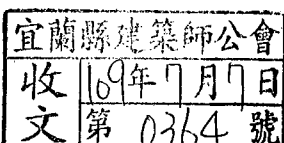 宜蘭縣建築師公會
收文
109年7月7日
第0364號